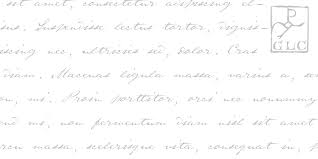 sit amet, consectetur adipiscing el-
sus. Suspendisse lectus tortor, digniss-
iscing nec, ultricies sed, dolor. Cras
diam. Maecenas ligula massa, varius a, se
on, mi. Proin porttitor, orci nec nonummy
end mi, non fermentum diam nisl sit amet
rcu massa, scelerisque vita, consequat in, p
P
GLC